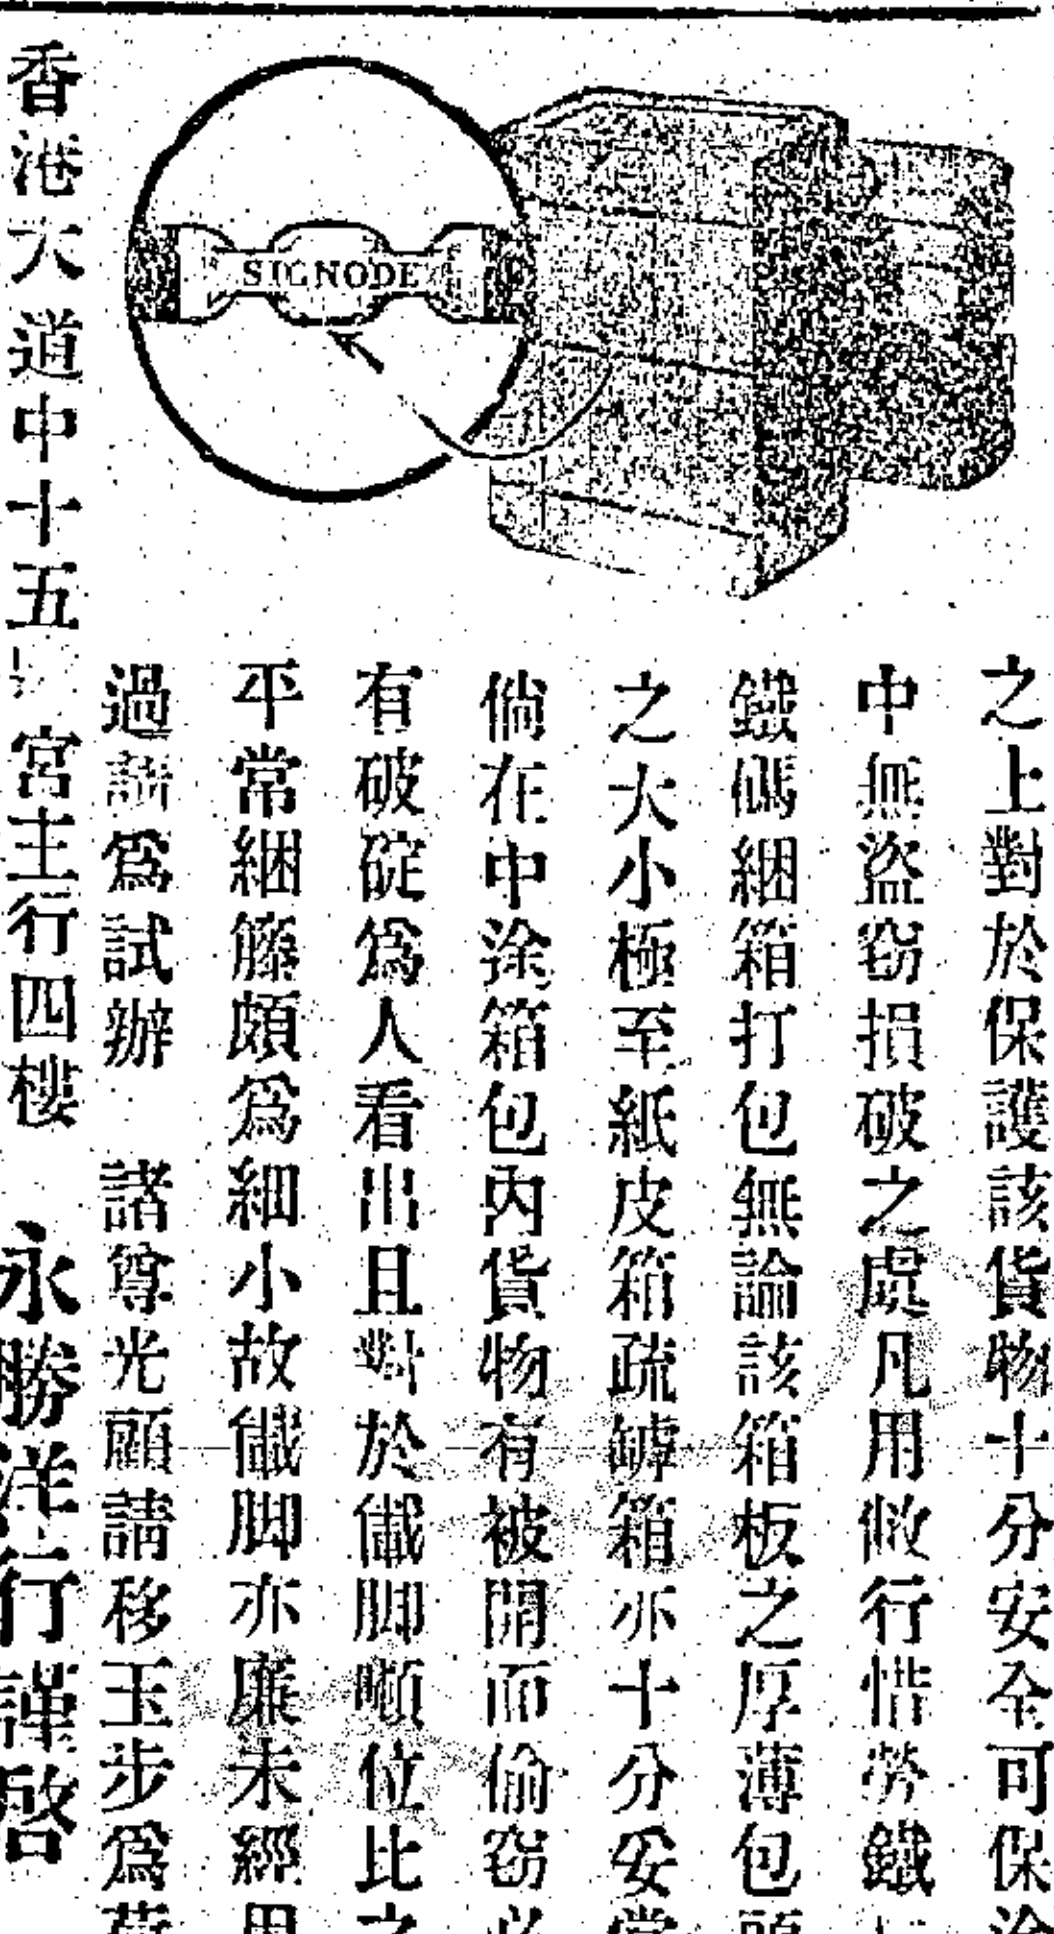 之上對於保護該貨物十分安全可保途
中無盜窃損破之處凡用敝行惜勞鐵
鐵碼綑箱打包無論該箱板之厚薄包頭
之大小極至紙皮箱疏罅箱亦十分妥當
倘在中途箱包內貨物有被開而偷窃必
有破碇爲人看出且對於儎脚噸位比之
平常綑籐頗爲細小故儎脚亦廉未經用
過請爲試辦 諸尊光顧請移玉步爲荷
香港大道中十五 宮主行四樓 永勝洋行謹啓
SIGNODE